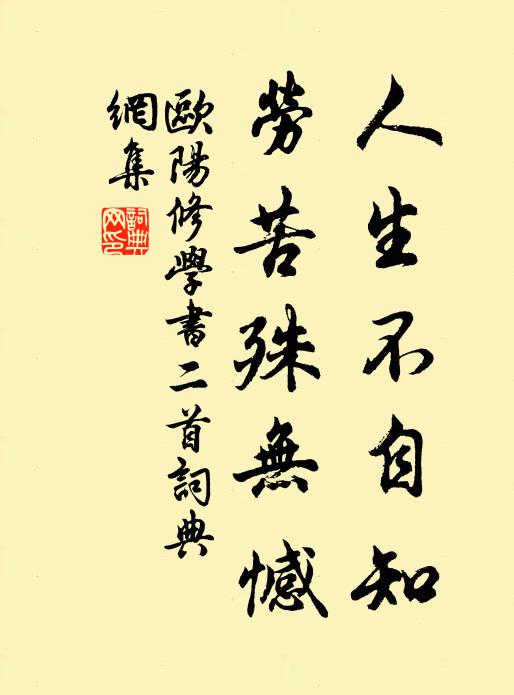 人生不自知
勞苦殊無憾
歐陽修學書二首詞典
網集
詞典網印